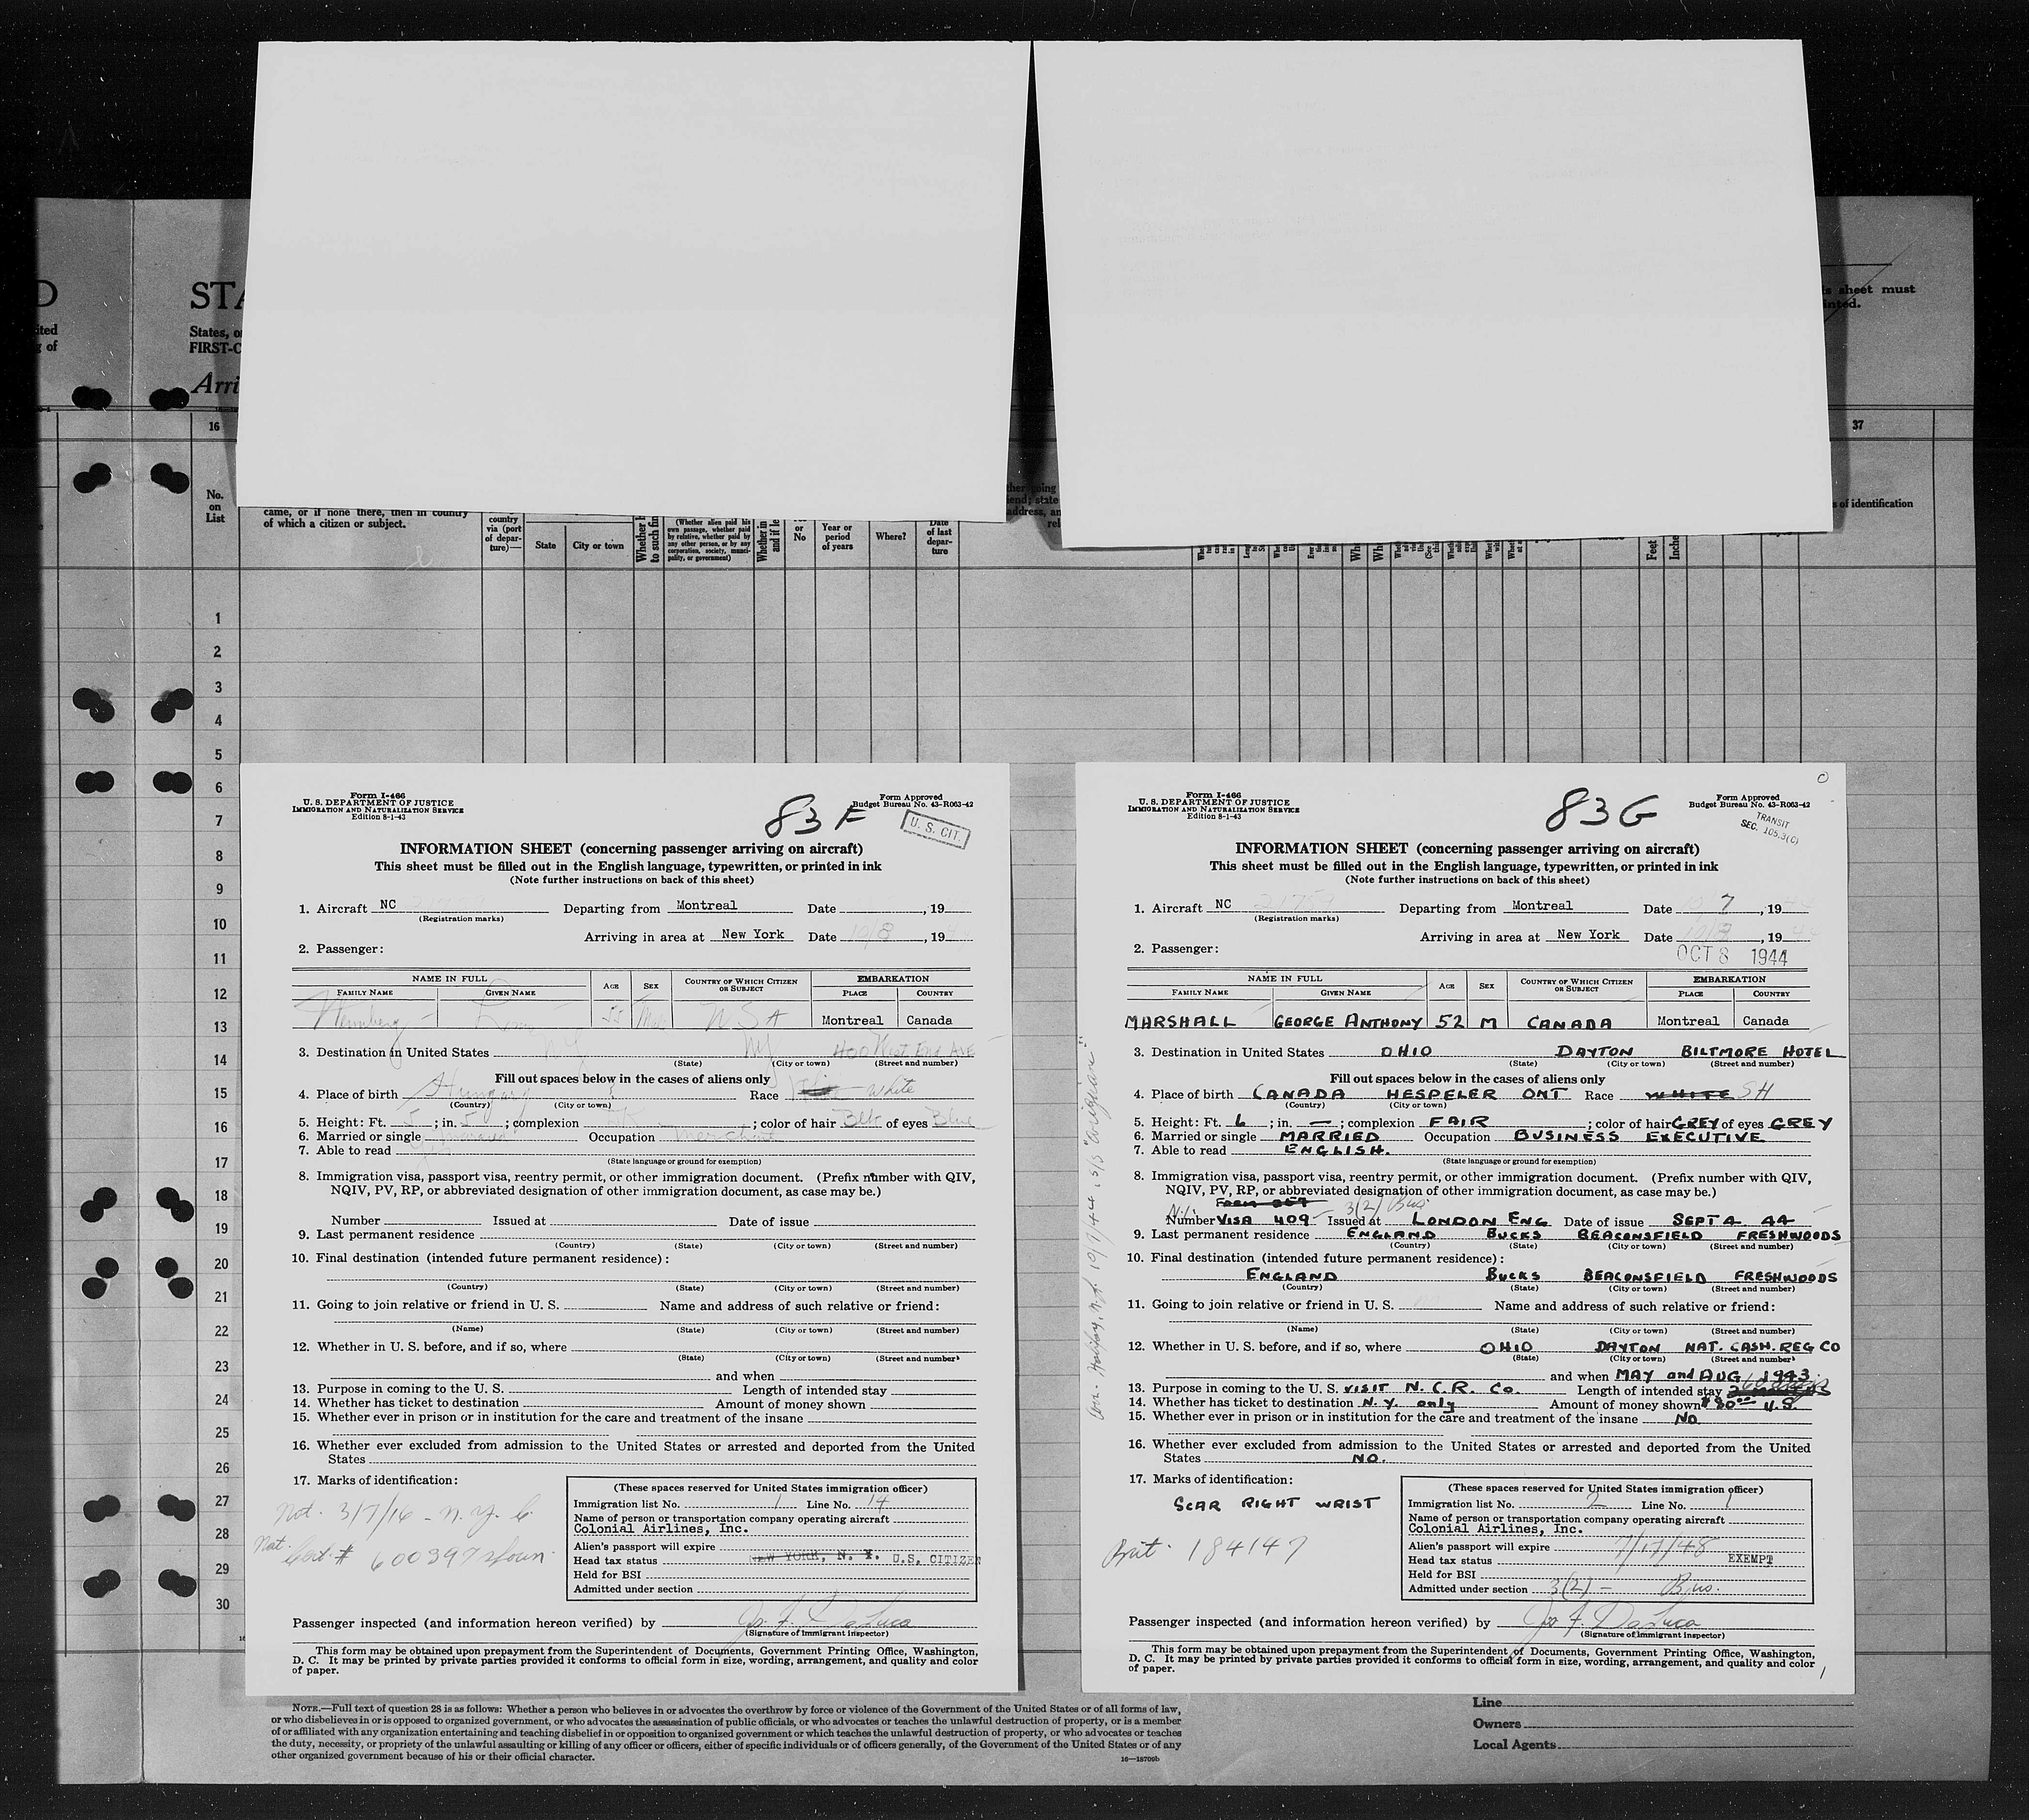 D
STA
s sheet must
inted.
ited
g of
States, o
FIRST-C
Arri
16
37
No.
on
List
came, or if none there, then in country
of which a citizen or subject.
country
via (port
of depar-
ture)—
State
City or town
Whether
to such fin
(Whether alien paid his
own passage, whether paid
by relative, whether paid by
any other person, or by any
corporation, society, munici-
pality, or government)
Whether in
and if le
or
No
Year or
period
of years
Where?
Date
of last
depar-
ture
s of identification
Feet
Inche
1
2
3
4
5
6
7
8
9
10
11
12
13
14
15
16
17
18
19
20
21
22
23
24
25
26
27
28
29
30
Form I-466
U. S. DEPARTMENT OF JUSTICE
IMMIGRATION AND NATURALIZATION SERVICE
Edition 8-1-43
83 F
Form Approved
Budget Bureau No. 43-R063-42
U. S. CIT.
INFORMATION SHEET (concerning passenger arriving on aircraft)
This sheet must be filled out in the English language, typewritten, or printed in ink
(Note further instructions on back of this sheet)
1. Aircraft NC Departing from Montreal Date , 19
(Registration marks)
Arriving in area at New York Date 10/8 , 19
2. Passenger:
NAME IN FULL AGE SEX COUNTRY OF WHICH CITIZEN OR SUBJECT EMBARKATION
FAMILY NAME GIVEN NAME PLACE COUNTRY
55 Male USA Montreal Canada
3. Destination in United States NY NY 400 West End Ave
(State) (City or town) (Street and number)
Fill out spaces below in the cases of aliens only
4. Place of birth Hungary Race White
(Country) (City or town)
5. Height: Ft. 5 ; in. 5 ; complexion DK ; color of hair Blk of eyes Blue
6. Married or single Married Occupation merchant
7. Able to read
(State language or ground for exemption)
8. Immigration visa, passport visa, reentry permit, or other immigration document. (Prefix number with QIV,
NQIV, PV, RP, or abbreviated designation of other immigration document, as case may be.)
Number Issued at Date of issue
9. Last permanent residence
(Country) (State) (City or town) (Street and number)
10. Final destination (intended future permanent residence):
(Country) (State) (City or town) (Street and number)
11. Going to join relative or friend in U. S. Name and address of such relative or friend:
(Name) (State) (City or town) (Street and number)
12. Whether in U. S. before, and if so, where
(State) (City or town) (Street and number)
and when
13. Purpose in coming to the U. S. Length of intended stay
14. Whether has ticket to destination Amount of money shown
15. Whether ever in prison or in institution for the care and treatment of the insane
16. Whether ever excluded from admission to the United States or arrested and deported from the United
States
17. Marks of identification:
Nat. 3/7/16 - N.Y. C.
Nat. Cert. # 600397 shown
(These spaces reserved for United States immigration officer)
Immigration list No. 1 Line No. 14
Name of person or transportation company operating aircraft
Colonial Airlines, Inc.
Alien's passport will expire
Head tax status NEW YORK, N. Y. U.S. CITIZEN
Held for BSI
Admitted under section
Passenger inspected (and information hereon verified) by Jo. F. DaLuca
(Signature of Immigrant Inspector)
This form may be obtained upon prepayment from the Superintendent of Documents, Government Printing Office, Washington,
D. C. It may be printed by private parties provided it conforms to official form in size, wording, arrangement, and quality and color
of paper.
Form I-466
U. S. DEPARTMENT OF JUSTICE
IMMIGRATION AND NATURALIZATION SERVICE
Edition 8-1-43
83G
Form Approved
Budget Bureau No. 43-R063-42
TRANSIT
SEC. 105.3(C)
INFORMATION SHEET (concerning passenger arriving on aircraft)
This sheet must be filled out in the English language, typewritten, or printed in ink
(Note further instructions on back of this sheet)
1. Aircraft NC 21759 Departing from Montreal Date 7 , 19
(Registration marks)
Arriving in area at New York Date 10/8 , 19 44
2. Passenger:
OCT 8 1944
NAME IN FULL AGE SEX COUNTRY OF WHICH CITIZEN OR SUBJECT EMBARKATION
FAMILY NAME GIVEN NAME PLACE COUNTRY
MARSHALL GEORGE ANTHONY 52 M CANADA Montreal Canada
3. Destination in United States OHIO DAYTON BILTMORE HOTEL
(State) (City or town) (Street and number)
Fill out spaces below in the cases of aliens only
4. Place of birth CANADA HESPELER ONT Race WHITE SH
(Country) (City or town)
5. Height: Ft. 6 ; in. — ; complexion FAIR ; color of hair GREY of eyes GREY
6. Married or single MARRIED Occupation BUSINESS EXECUTIVE
7. Able to read ENGLISH.
(State language or ground for exemption)
8. Immigration visa, passport visa, reentry permit, or other immigration document. (Prefix number with QIV,
NQIV, PV, RP, or abbreviated designation of other immigration document, as case may be.)
FORM 257 3(2) Bus
Number VISA 409 Issued at LONDON ENG Date of issue SEPT 4 44
9. Last permanent residence ENGLAND BUCKS BEACONSFIELD FRESHWOODS
(Country) (State) (City or town) (Street and number)
10. Final destination (intended future permanent residence):
ENGLAND BUCKS BEACONSFIELD FRESHWOODS
(Country) (State) (City or town) (Street and number)
11. Going to join relative or friend in U. S. Name and address of such relative or friend:
(Name) (State) (City or town) (Street and number)
12. Whether in U. S. before, and if so, where OHIO DAYTON NAT. CASH. REG CO
(State) (City or town) (Street and number)
and when MAY and AUG 1943
13. Purpose in coming to the U. S. VISIT N. C. R. Co. Length of intended stay 60 days
14. Whether has ticket to destination N. Y. only Amount of money shown $80.00 U.S.
15. Whether ever in prison or in institution for the care and treatment of the insane NO
16. Whether ever excluded from admission to the United States or arrested and deported from the United
States NO.
17. Marks of identification:
SCAR RIGHT WRIST
Brit. 184147
(These spaces reserved for United States immigration officer)
Immigration list No. 2 Line No. 1
Name of person or transportation company operating aircraft
Colonial Airlines, Inc.
Alien's passport will expire 7/17/48
Head tax status EXEMPT
Held for BSI
Admitted under section 3(2) - Bus.
Passenger inspected (and information hereon verified) by Jo. F. DaLuca
(Signature of Immigrant Inspector)
This form may be obtained upon prepayment from the Superintendent of Documents, Government Printing Office, Washington,
D. C. It may be printed by private parties provided it conforms to official form in size, wording, arrangement, and quality and color
of paper.
NOTE.—Full text of question 28 is as follows: Whether a person who believes in or advocates the overthrow by force or violence of the Government of the United States or of all forms of law,
or who disbelieves in or is opposed to organized government, or who advocates the assassination of public officials, or who advocates or teaches the unlawful destruction of property, or is a member
of or affiliated with any organization entertaining and teaching disbelief in or opposition to organized government or which teaches the unlawful destruction of property, or who advocates or teaches
the duty, necessity, or propriety of the unlawful assaulting or killing of any officer or officers, either of specific individuals or of officers generally, of the Government of the United States or of any
other organized government because of his or their official character.
16—18709b
Line
Owners
Local Agents